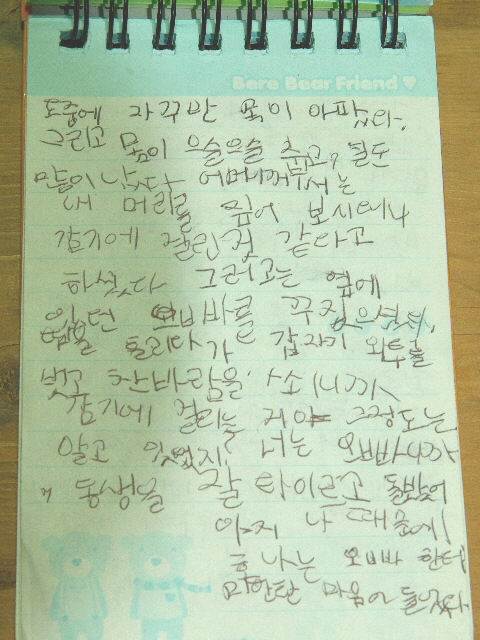 Bare Bear Friend ♥
도중에 자꾸만 목이 아팠다.
그리고 몸이 으슬으슬 춥고, 열도
많이 났다 어머니께서는
내 머리를 짚어 보시더니
감기에 걸린 것 같다고
하셨다 그러고는 옆에
있던 오빠를 꾸짖으셨다.
땀을 흘리다가 갑자기 외투를
벗고 찬바람을 쏘이니까
감기에 걸리는 거야 그정도는
알고 있었지 너는 오빠니까
동생을 잘 타이르고 돌봤어
야지 나 때문에
혼나는 오빠 한테
미안한 마음이 들었다